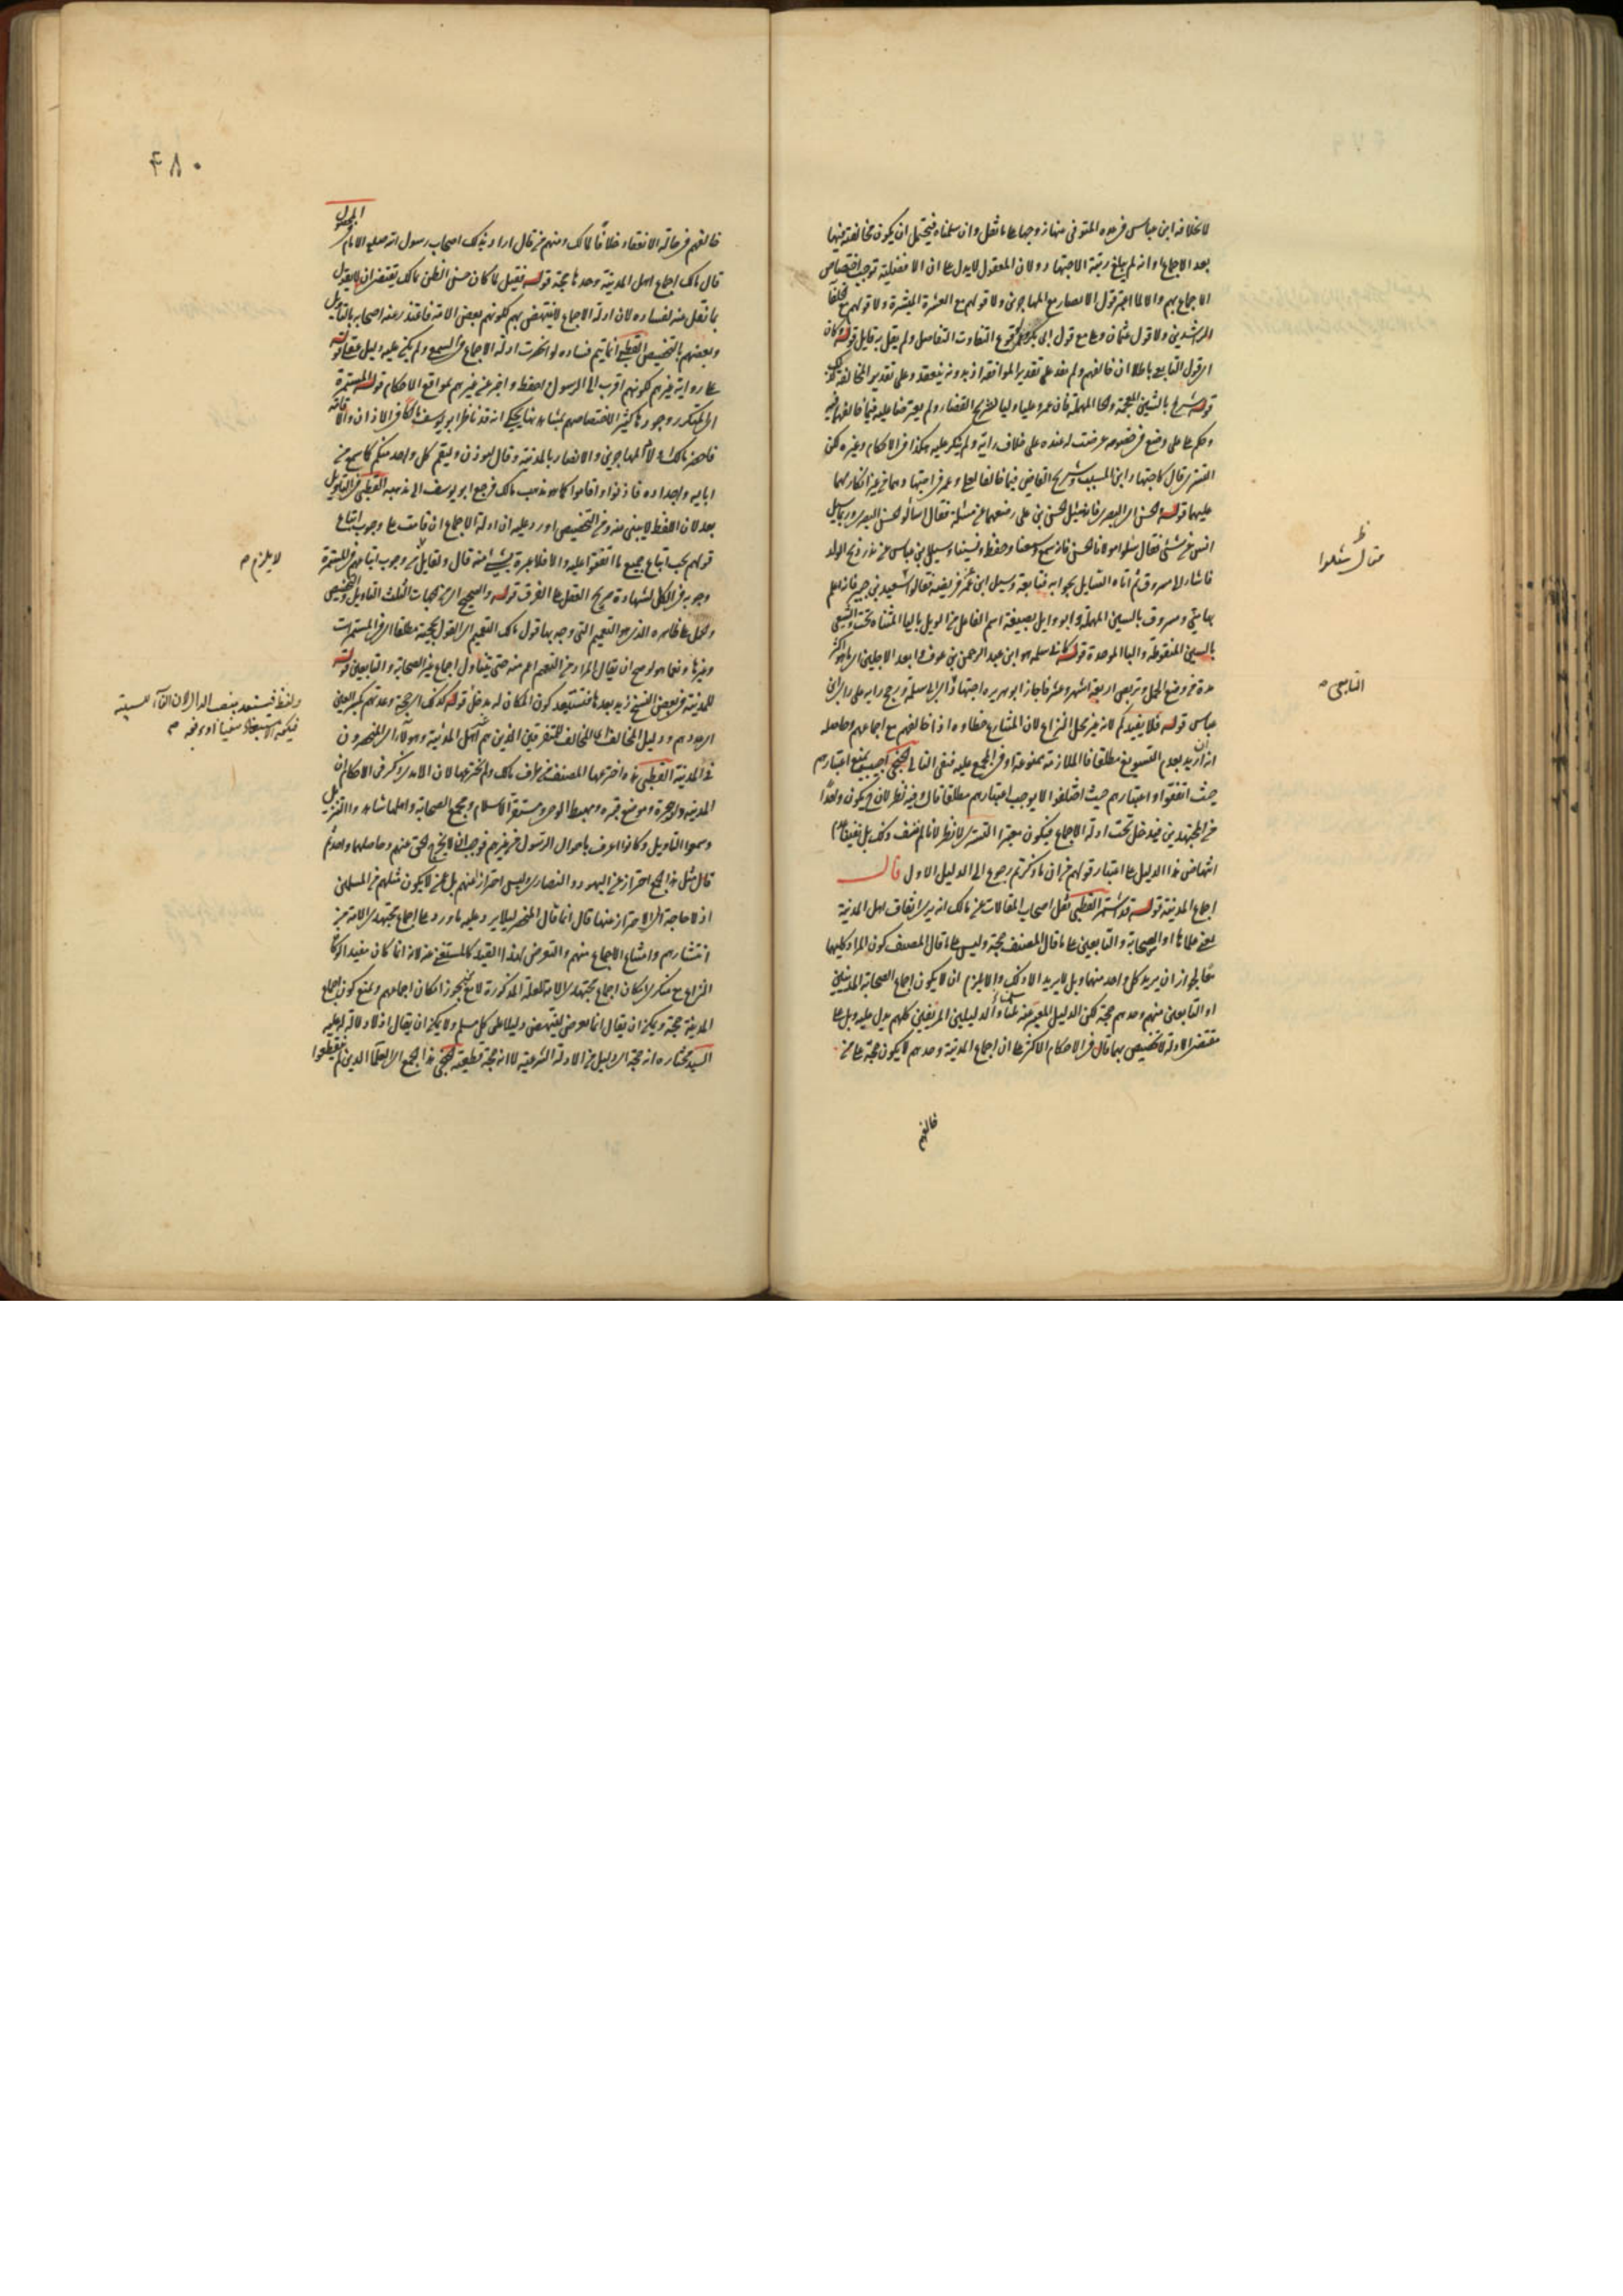 لانخلافه ابن عباس في عدة المتوفى عنها زوجها على ما نقل وان سلمناه فيحتمل ان يكون مخالفته فيها
بعد الاجماع وانه لم يبلغ رتبة الاجتهاد ولان المعقول لا يدل على ان الافضلية توجب اختصاص
الاجماع بهم والا لما اعتبر قول الانصار مع المهاجرين ولا قولهم مع العشرة المبشرة ولا قولهم مع خلفا
الراشدين ولا قول عثمان وعلي مع قول ابي بكر وعمر لوقوع التفاوت التفاضل ولم يقل به قايل قوله وكان
اي قول التابعي باطلا ان خالفهم ولم على تقدير الموافقة اذ بدونه ينعقد وعلى تقدير المخالفة
قوله شريح بالشين المعجمة والحا المهملة فان عمر وعليا وليا لشريح القضاء ولم يعترضا عليه فيما خالفهما فيه
وحكم على علي في خصومة عرضت له عنده على خلاف رايه ولم ينكر عليه هكذا في الاحكام وغيره لكن
التستري قال كاجتهاد ابن المسيب وشريح القاضي فيما خالفا لعلي وعمر في اجتهادهما من غير انكارهما
عليهما قوله والحسن اي البصري فانه سئل الحسن بن علي رضعهما عن مسئلة فقال اسألوا الحسن البصري وربما سئل
انس عن شئ فقال سلوا مولانا الحسن فانه سمع وسمعنا وحفظ ونسينا وسئل ابن عباس عن نذر ذبح الولد
فاشار الى مسروق ثم اتاه السايل بجوابه فتابعه وسئل ابن عمر عن فريضة فقال اسعيد بن جبير فانه اعلم
بها مني ومسروق بالسين المهملة وابو وايل بصيغة اسم الفاعل من الويل باليا المثناة تحت والشعبي
بالشين المنقوطة والبا الموحدة قوله كابي سلمه هو ابن عبد الرحمن بن عوف وابعد الاجلين اي ما هو اكثر
مدة من وضع الحمل وتربص اربعة اشهر وعشر فاجاز ابو هريره اجتهاد ابي سلمة ورجح رايه على راي ابن
عباس قوله فلا يفيدكم لانه غير محل النزاع لان المتنازع خطاوه اذا خالفهم مع اجماعهم وحاصله
انه ان اريد بعدم التسويغ مطلقا فالملازمة ممنوعة او في المجمع عليه فنفي التالي الخنجي اجيب بمنع اعتبارهم
حيث اتفقوا واعتبارهم حيث اختلفوا لا يوجب اعتبارهم مطلقا قال وفيه نظر لانه يكون واحدا
من المجتهدين فيدخل تحت ادلة الاجماع فيكون معتبرا التستري لا نظر لانا لم نضف ذلك بل نفينا
انتهاض هذا الدليل على اعتبار قولهم فان ما ذكرتم رجوع الى الدليل الاول قال
اجماع المدينة قوله قد اشتهر القطبي نقل اصحاب المقالات عن مالك انه يرى اتفاق اهل المدينة
يعني علماها او الصحابة والتابعين على ما قال المصنف حجة وليس على ما قال المصنف كون المراد كليهما
معا لجواز ان يريد كل واحد منهما وبل لا يريد الا ذلك والا يلزم ان لا يكون اجماع الصحابة المدنيين
او التابعين منهم وحدهم حجة لكن الدليل المعبر عنه بلنا واول الدليلين المزيفين كلهم يدل عليه وبل على
مقتضى الادلة لا تخصيص بهما قال في الاحكام الاكثر على ان اجماع المدينة وحدهم لا يكون حجة على من
خالفهم
فقال سئلوا
التابعي صح
٤٨٠
المحصول
خالفهم في حالة الانعقاد خلافا لمالك ومنهم من قال اراد بذلك اصحاب رسول الله صلعم الامام في
قال مالك اجماع اهل المدينة وحدها حجة قوله فقيل لما كان حسن الظن بمالك يقتضي ان لا يقول
بما نقل عنه لفساده لان ادلة الاجماع لا ينتهض بهم لكونهم بعض الامة فاعتذر عنه اصحابه بالتاويل
وبعضهم بالتخصيص القطبي انما يتم فساده لو انحصرت ادلة الاجماع في السمع ولم يكن عليه دليل عقلي قوله
على رواية غيرهم لكونهم اقرب الى الرسول واحفظ واخبر من غيرهم بمواقع الاحكام قوله المستمرة
اي المتكرر وجودها كثيرا لاختصاصهم بمشاهدتها يحكى انه قد ناظر ابو يوسف مالكا في الاذان والاقامة
فاحضر مالك اولاد المهاجرين والانصار بالمدينة وقال ليوذن وليقم كل واحد منكم كما سمع من
ابائه واجداده فاذنوا واقاموا كما هو مذهب مالك فرجع ابو يوسف الى مذهبه القطبي في التاويل
بعد لان اللفظ لا يبنى عنه وعن التخصيص اورد عليه ان ادلة الاجماع ان قامت على وجوب اتباع
قولهم يجب اتباع جميع ما اتفقوا عليه والا فلا عبرة بشئ منه قال ولقايل ان من وجوب اتباعهم في المستمرة
وجوبه في الكل لشهادة صريح العقل على الفرق قوله والصحيح اي من الجهات الثلث التاويل والتخصيص
والحمل على ظاهره الذي هو التعميم التي وجه بها قول مالك التعميم اي القول بحجيته مطلقا اي في المستمرات
وغيرها ونعما هو لو صح ان يقال المراد من التعميم اعم منه حتى يتناول اجماع غير الصحابة والتابعين قوله
للمدينة في بعض النسخ زيد بعدها فتستبعد كون المكان له مدخل قوله كذلك ارجحية وعددهم بكسر العين
اي عددهم ودليل المخالف اي المخالف للمتفرقين الذين هم غير اهل المدينة وهولاء اي المنحصرون
في المدينة القطبي هذه اخترعها المصنف من طرف مالك ولم يخترعها لان الامدي ذكر في الاحكام ان
المدينة دار الهجرة وموضع قبره ومهبط الوحي ومستقر الاسلام ومجمع الصحابة واهلها شاهدوا التنزيل
وسمعوا التاويل وكانوا اعرف باحوال الرسول من غيرهم فوجب ان لا يخرج الحق عنهم وحاصلهما واحد ثم
قال مثل هذا الجمع احتراز عن اليهود والنصارى وليس احترازا عنهم بل عمن لا يكون مثلهم من المسلمين
اذ لا حاجة الى الاحتراز عنهما قال انما قال المنحصر ليلا يرد عليه ما ورد على اجماع مجتهدي الامة من
انتشارهم وامتناع الاجماع منهم والتعرض لهذا القيد كالمستغنى عنه لانه انما كان مفيدا لو كان
النزاع مع منكري امكان اجماع مجتهدي الامة للعلة المذكورة لا مع مجوز امكان اجماعهم ومنع كون اجماع
المدينة حجة ويمكن ان يقال انما تعرض لينتهض دليلا على كل مسلم ولا يمكن ان يقال اذ لا دلالة له عليه
السيد مختاره انه حجة اي دليل من الادلة الشرعية لا انه حجة قطعية الخنجي هذا الجمع اي العلما الذين لم يقطعوا
لا يلزم صح